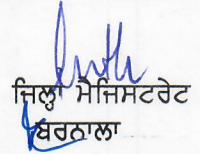 ਜ਼ਿਲ੍ਹਾ ਮੈਜਿਸਟਰੇਟ
ਬਰਨਾਲਾ